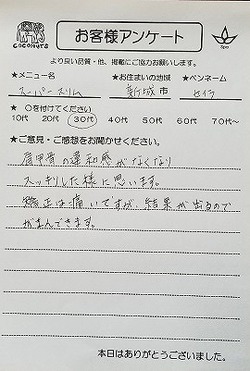 COCONUTS
お客様アンケート
Spa
より良い品質・他、掲載にご協力お願いします。
★メニュー名 ★お住まいの地域 ★ペンネーム
スーパースリム 新城市
★ ○を付けてください
10代 20代 30代 40代 50代 60代 70代~
★ご意見・ご感想をお聞かせください。
肩甲骨の違和感がなくなり
スッキリした様に思います。
矯正は痛いですが、結果が出るので
がまんできます。
本日はありがとうございました。